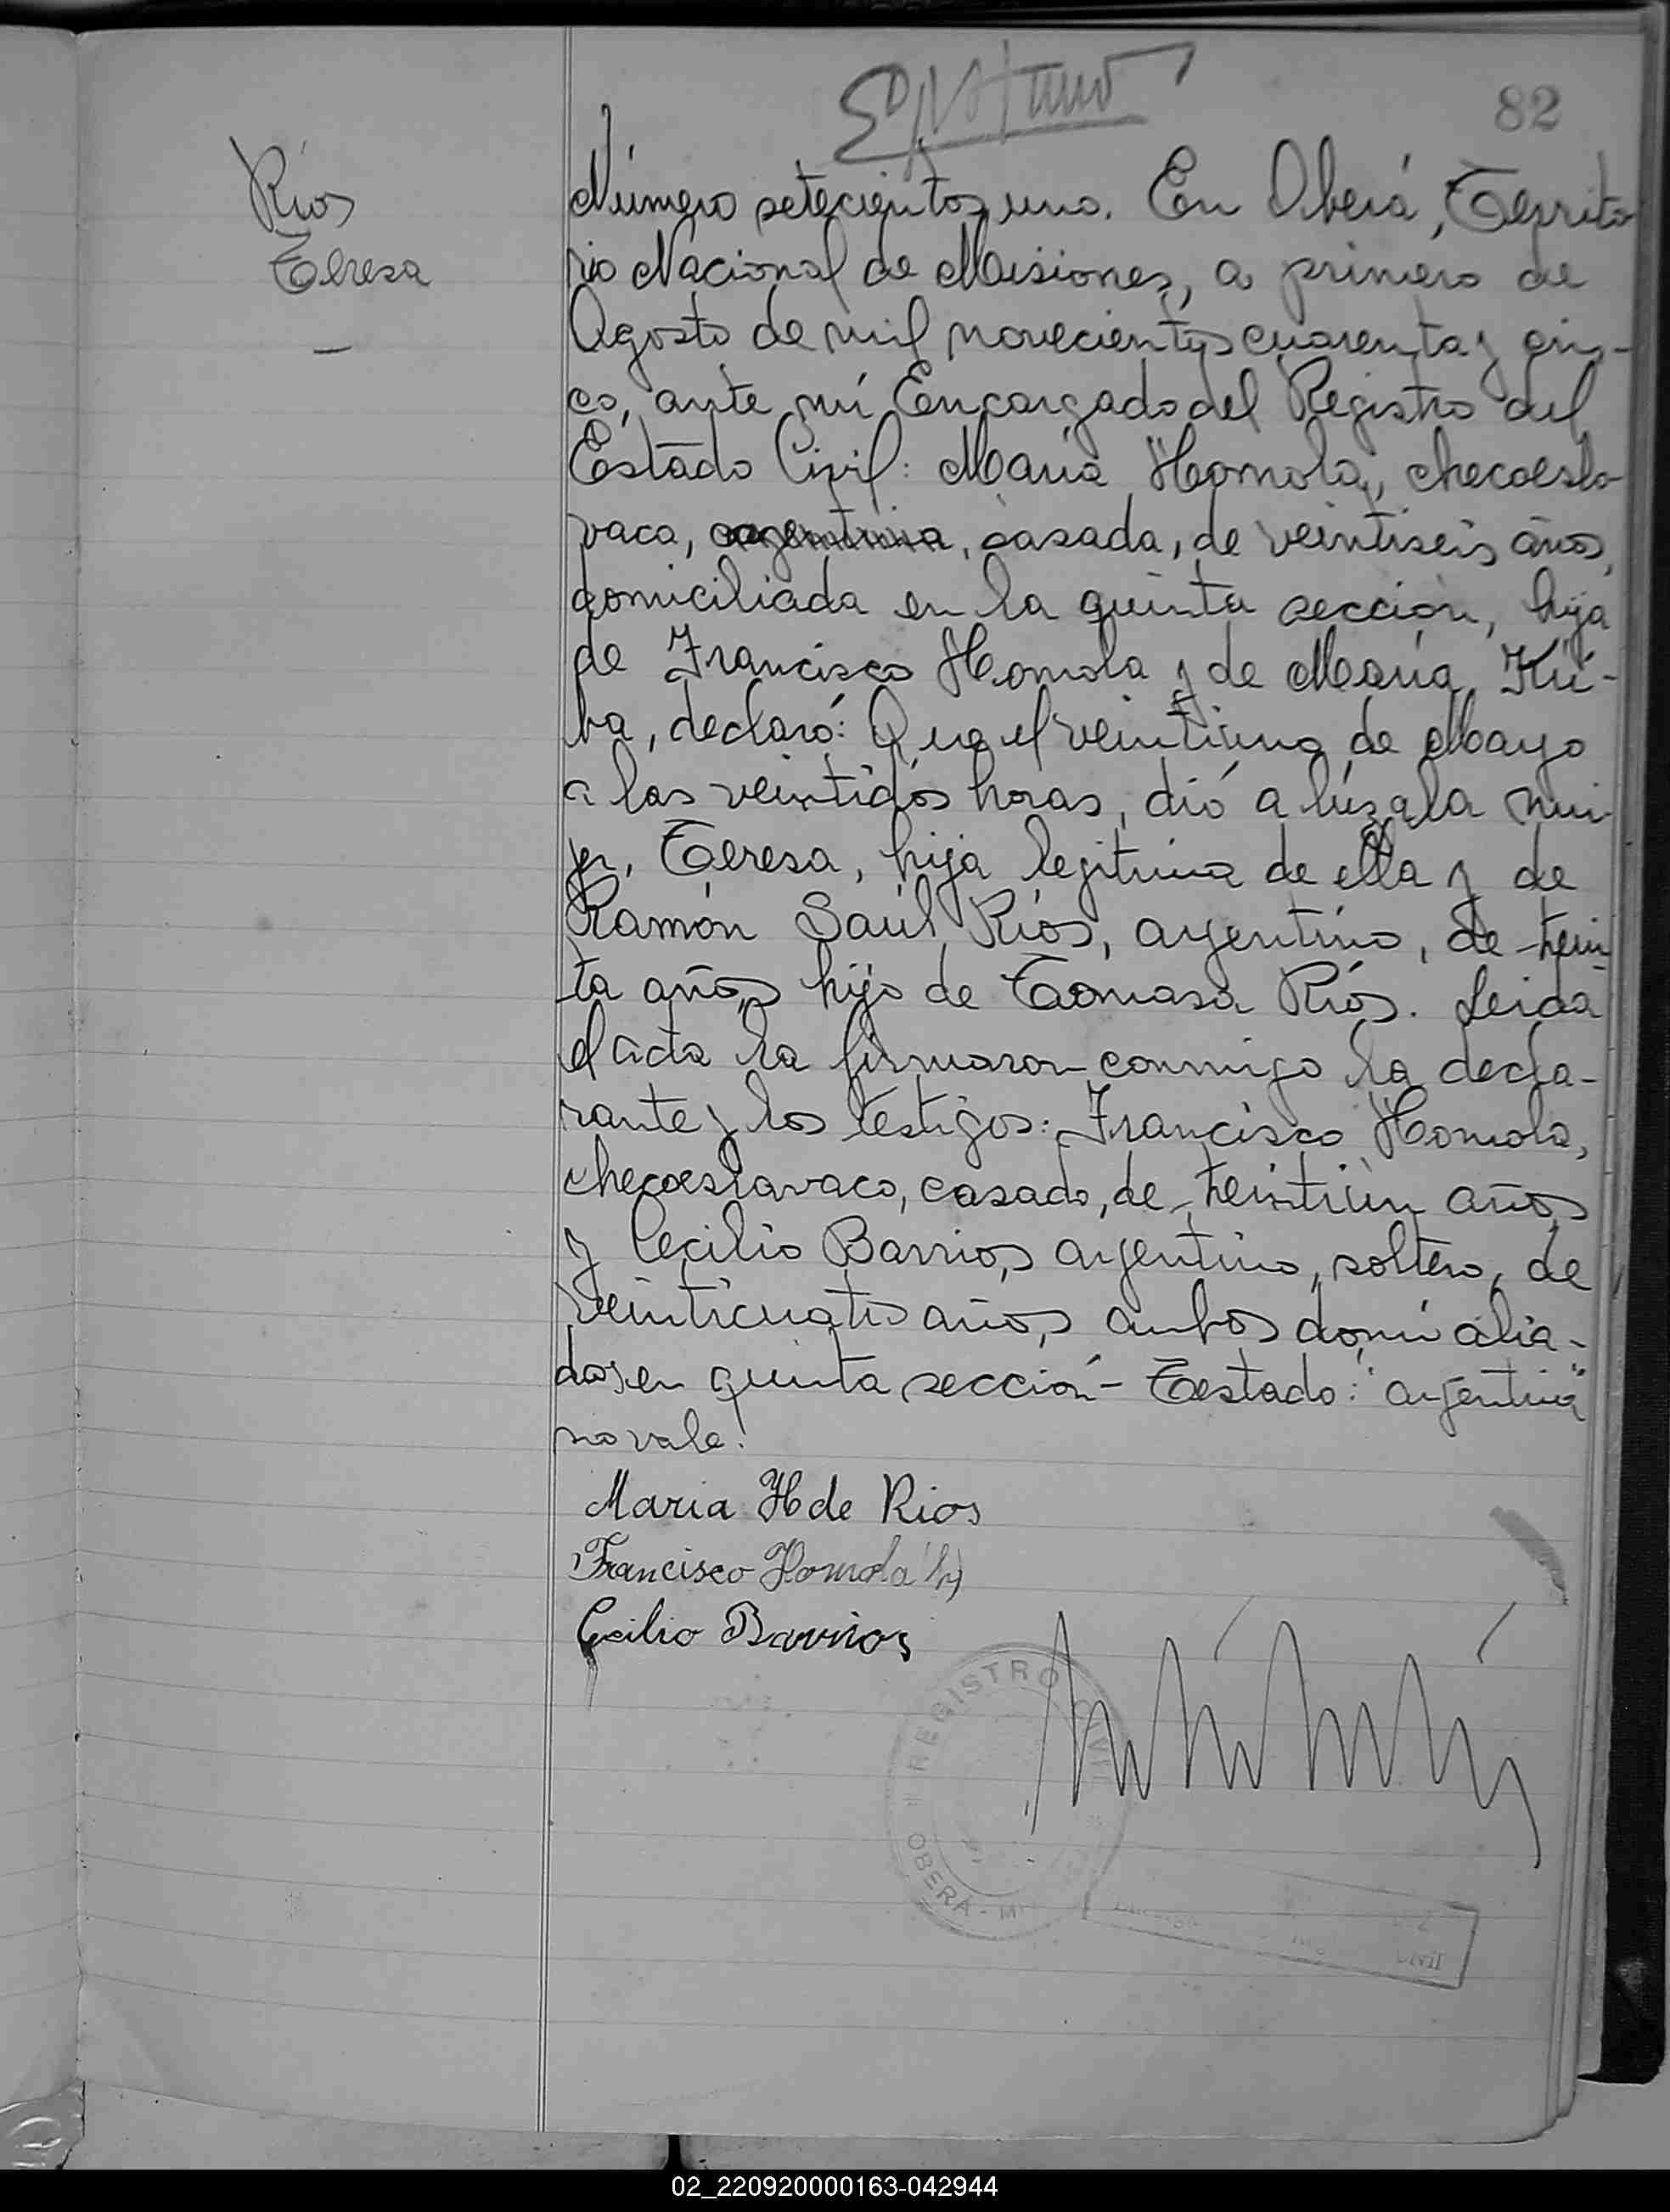 82
Ríos
Teresa
Número setecientos uno. En Oberá, Territo
rio Nacional de Misiones, a primero de
Agosto de mil novecientos cuarenta y cin-
co, ante mí Encargado del Registro del
Estado Civil: María Homola, checoeslo-
vaca, argentina, casada, de veintiseis años,
domiciliada en la quinta sección, hija
de Francisco Homola y de María Kú-
ba, declaró: Que el veintiuno de Mayo
a las veintidós horas, dió a lúz a la mu-
jer, Teresa, hija legitima de ella y de
Ramón Saúl Ríos, argentino, de trein
ta años, hijo de Tomasa Ríos. Leida
el acta la firmaron conmigo la decla-
rante y los testigos: Francisco Homola,
checoeslavaco, casado, de treintiún años
y Cecilio Barrios, argentino, soltero, de
veinticuatro años, ambos domicilia-
dos en quinta sección - Testado: "argentina"
no vale.
Maria H de Rios
Francisco Homola (h)
Cecilio Barrios
REGISTRO CIVIL
OBERÁ - M
Civil
02_220920000163-042944